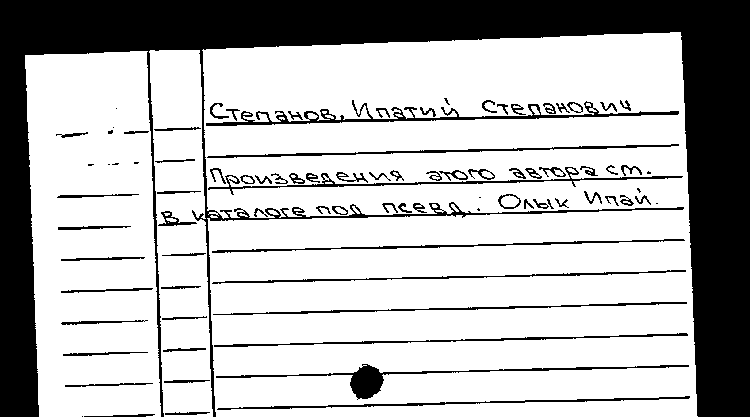 Степанов, Ипатий Степанович
Произведения этого автора см.
в каталоге под псевд.: Олык Ипай.